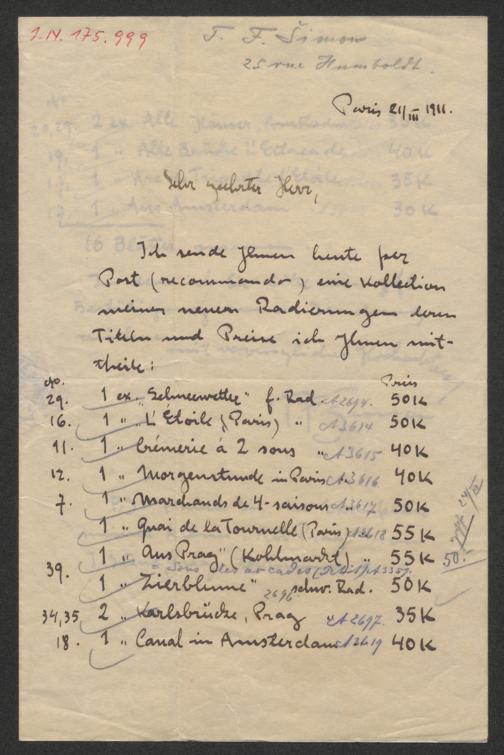 I.N. 175.999
T. F. Šimon
25 rue Humboldt.
Paris 21/III 1911.
Sehr geehrter Herr,
Ich sende Ihnen heute per
Post (recommando) eine Kollection
meiner neuern Radierungen deren
Titeln und Preise ich Ihnen mit-
theile:
No. Preis
29. 1 ex. „Schneewetter" f. Rad. A2694. 50K
16. 1 „ L'Etoile (Paris) „ A3614 50K
11. 1 „ Crémerie á 2 sous „ A3615 40K
12. 1 „ Morgenstunde in Paris „ A3616 40K
7. 1 „ Marchands de 4-saisons „ A3617 50K
1 „ Quai de la Tournelle (Paris) A3618 55K
1 „ Aus Prag" (Kohlmarkt) „ 55K
= Sous les arcades A3357.
39. 1 „ Zierblume" schw. Rad. 50K
2696
34,35 2 „ Karlsbrücke, Prag A2697. 35K
18. 1 „ Canal in Amsterdam A3619 40K
50.